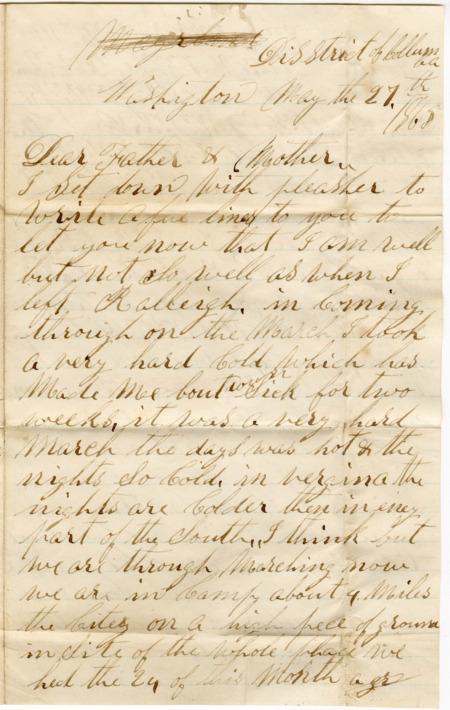 Disstrict of Collum
bia
Washigton May the 27th
186
Dear Father & Mother
I set down with pleasher to
write a fue lines to you to
let you now that I am well
but not so well as when I
left Raleigh. in Coming
through on the March I took
a very hard Cold, which has
Made Me bout Sick for two
weeks, it was a very hard
March the days was hot & the
nights So Cold. in vergina the
nights are Colder then in eney
part of the South, I think but
we are through Marching now
we are in Camp about 4 Miles
the Citey on a high pece of ground
in site of the whole place we
hed the 24 of this Month a gr